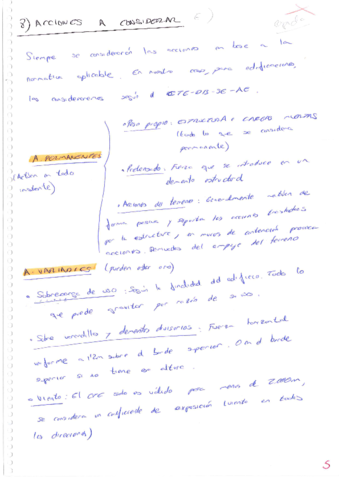 3) ACCIONES A CONSIDERAR
Siempre se considerarán las acciones en base a la
normativa aplicable. En nuestro caso, para edificaciones,
las consideraremos según el CTE-DB-SE-AE
• Peso propio: ESTRUCTURA + CARGAS MUERTAS
(todo lo que se considera
permanente)
A. PERMANENTES
(Actúan en todo
instante)
• Pretensado: Fuerza que se introduce en un
elemento estructural
• Acciones de terreno: Generalmente actúan de
forma pasiva y soportan las acciones
por la estructura, en muros de contención provocan
acciones derivadas del empuje del terreno
A. VARIABLES (pueden estar o no)
• Sobrecarga de uso: Según la finalidad del edificio. Todo lo
que puede gravitar por razón de su uso.
• Sobre barandillas y elementos divisorios: Fuerza horizontal
uniforme a 1'2m sobre el borde superior. O en el borde
superior si no tiene esa altura.
• Viento: El CTE solo es válido para menos de 2000m,
se considera un coeficiente de exposición (viento en todas
las direcciones)
5